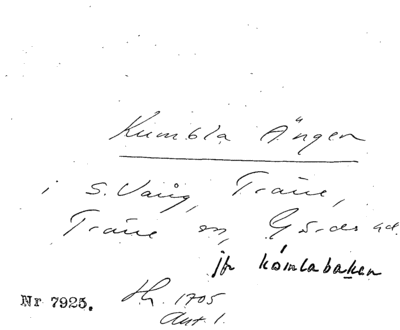 Kumbla Ängen
i S. Vång, Träne,
Träne sn, Gärds hd.
jfr kómlabaken
Nr 7925. Lh. 1705
Akt. 1.